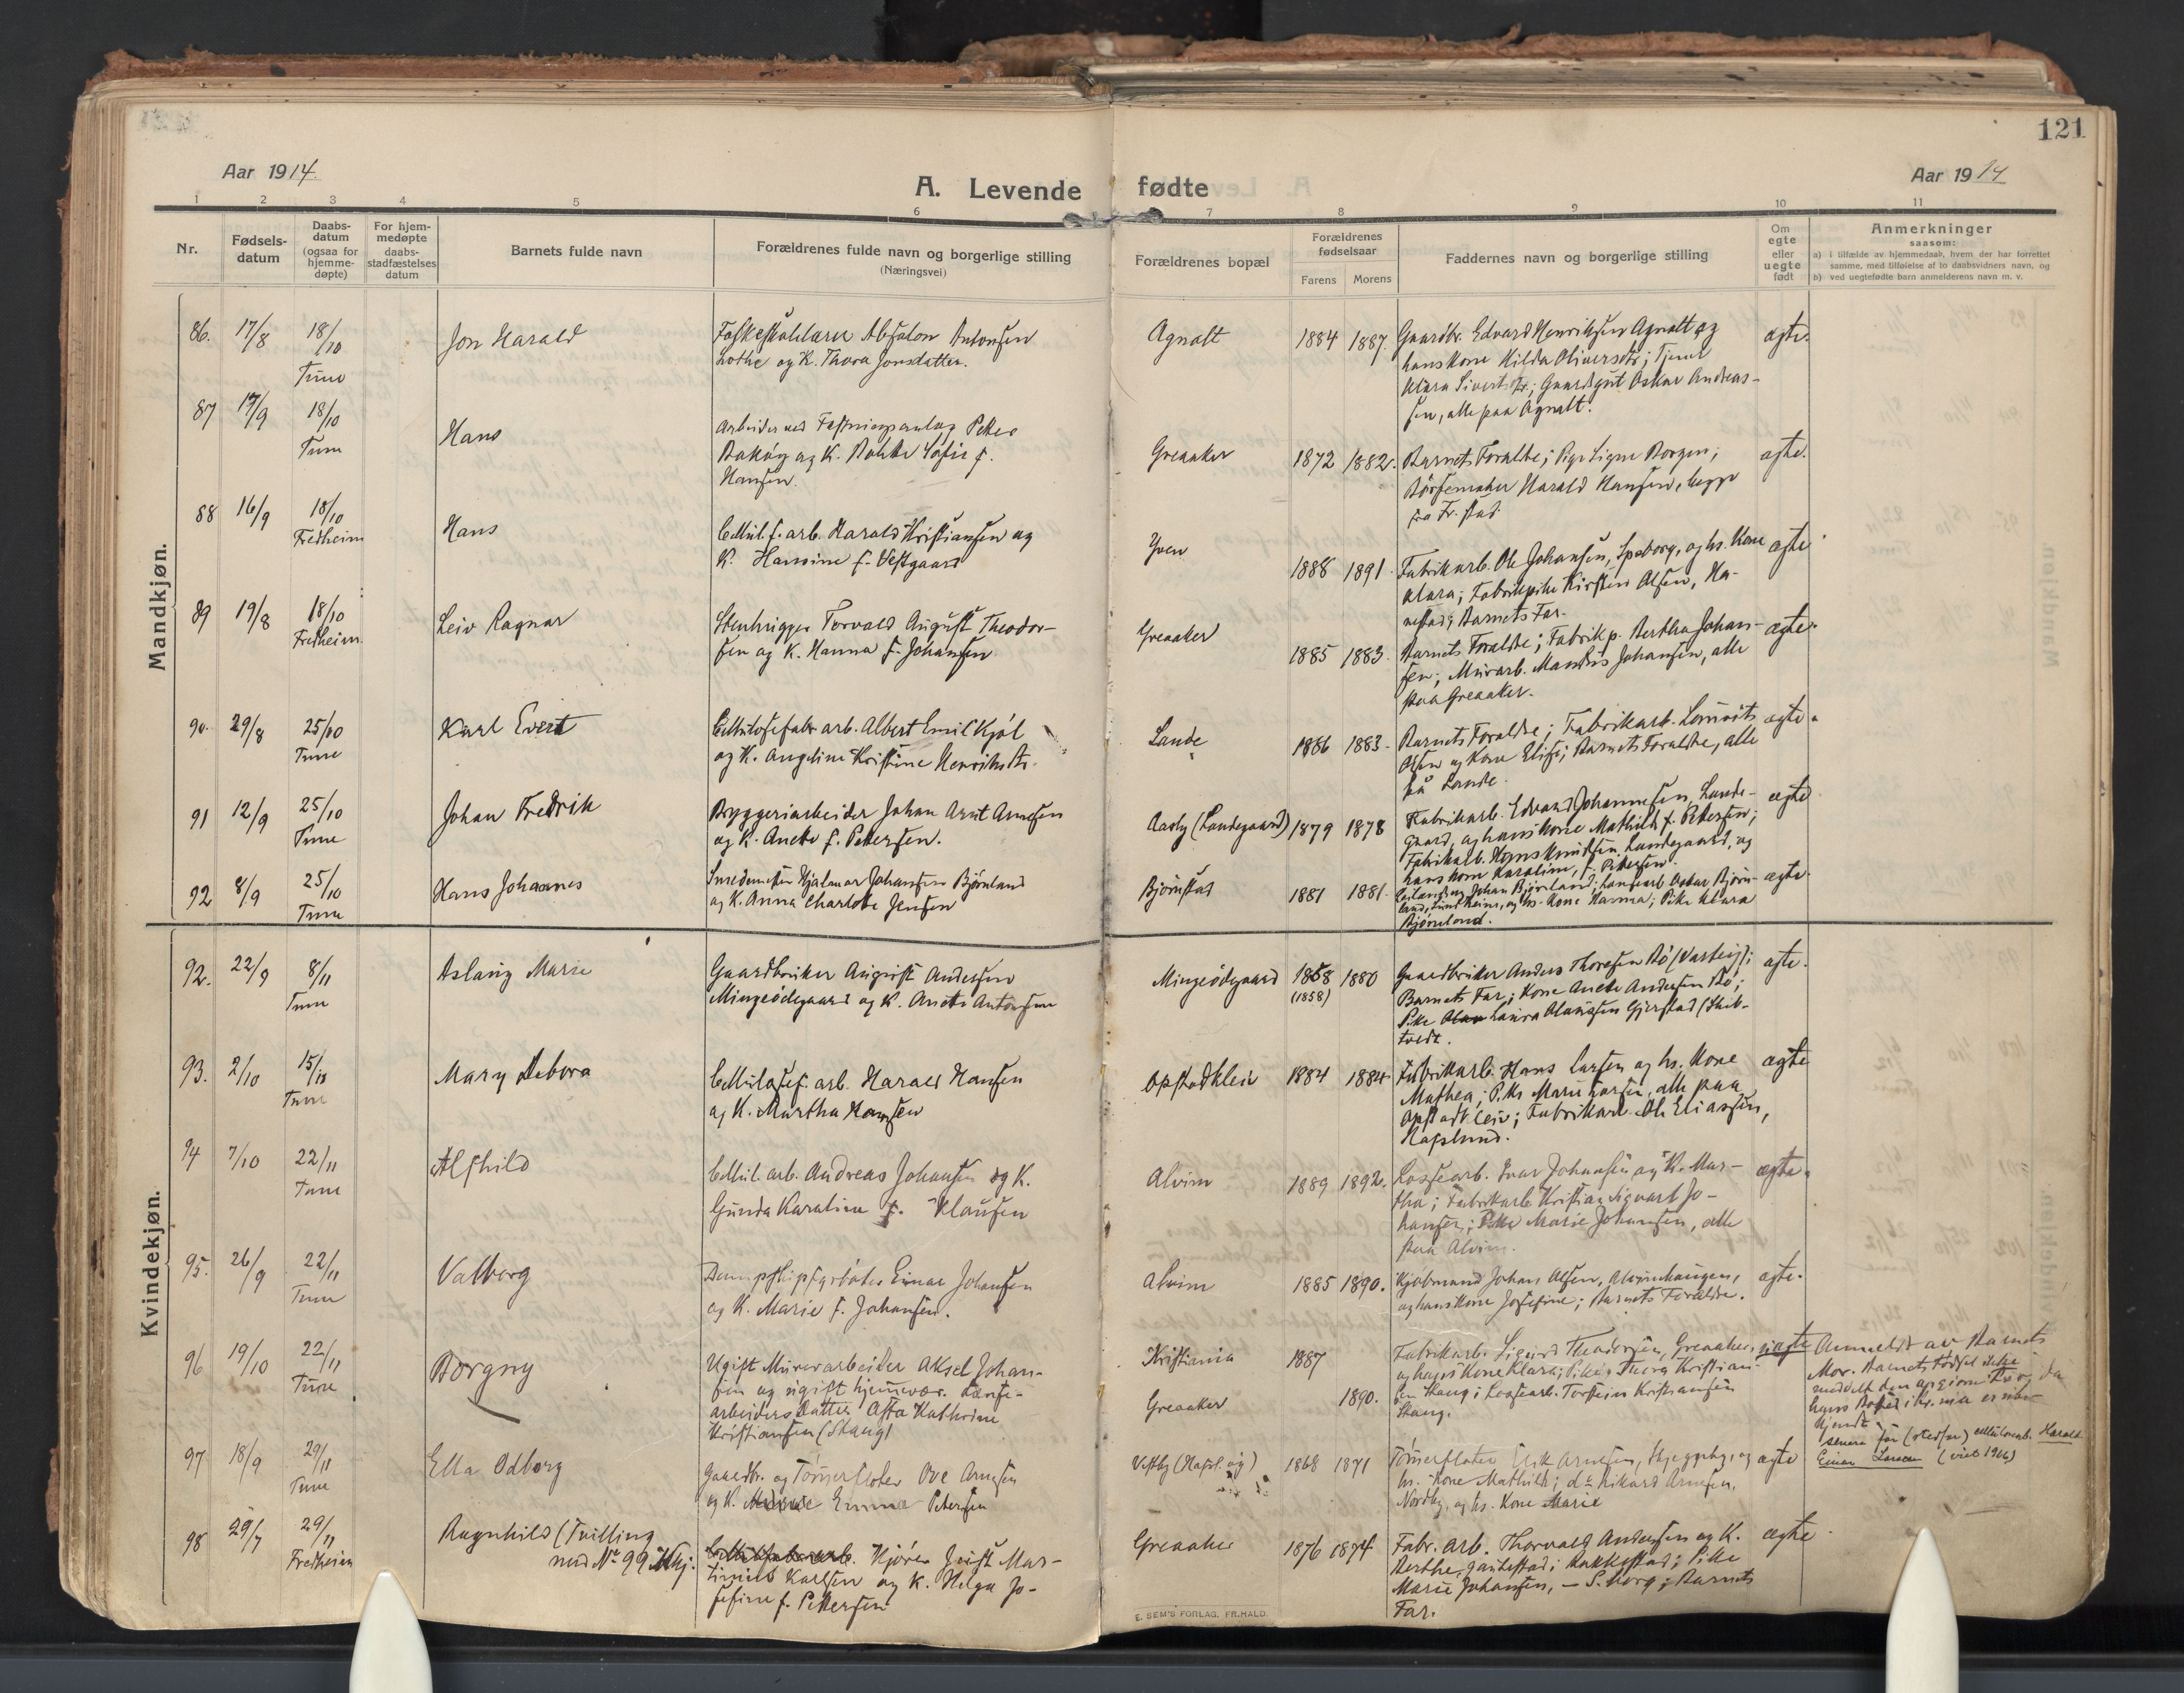 121
Aar 1914.
A. Levende fødte
Aar 1914
1 2 3 4 5 6 7 8 9 10 11
Nr.
Fødsels-
datum
Daabs-
datum
(ogsaa for
hjemme-
døpte)
For hjem-
medøpte
daabs-
stadfæstelses
datum
Barnets fulde navn
Forældrenes fulde navn og borgerlige stilling
(Næringsvei)
Forældrenes bopæl
Forældrenes
fødselsaar
Farens Morens
Faddernes navn og borgerlige stilling
Om
egte
eller
uegte
født
Anmerkninger
saasom:
a) i tilfælde av hjemmedaab, hvem der har forrettet
samme, med tilføielse af to daabsvidners navn, og
b) ved uegtefødte barn anmelderens navn m. v.
Mandkjøn.
86. 17/8 18/10 Tune
Jon Harald
Absalon Antonsen
Lothe og K. Thora Jonsdatter.
Agnalt 1884 1887.
Gaardbr. Edvard Henriksen Agnalt og
hans Kone Hilda Oliversdtr; Tjener
Klara Sivertsdtr.; Gaardsgut Oskar Andreas-
sen, alle paa Agnalt.
ægte.
87 17/9 18/10 Tune
Hans
Arbeider ved Fæstningsanlæg Petter
Bakøy og K. Sofie f.
Hansen.
Greaaker 1872 1882.
Barnets Forældre; Pige Signe Borgen;
Børsemaker Harald Hansen, begge
fra Fr.stad.
ægte.
88 16/9 18/10 Fredheim
Hans
Cellul.f. arb. Harald Kristiansen og
K. Hansine f. Vestgaard
Yven 1888 1891.
Fabrikarb. Ole Johansen, Spaborg, og hs. Kone
Klara; Fabrikpike Kirsten Olsen, Ha-
nestad; Barnets Far.
ægte
89 19/8 18/10 Fredheim
Leiv Ragnar
Stenhugger Torvald August Theodor-
sen og K. Hanna f. Johansen
Greaaker 1885 1883.
Barnets Forældre; Fabrikp. Bertha Johan-
sen; Murarb. Mandus Johansen, alle
paa Greaaker.
ægte.
90. 29/8 25/10 Tune
Karl Evert
Cellulosefabr.arb. Albert Emil Kjøl
og K. Angeline Kristine Henriksdtr.
Lande 1886 1883.
Barnets Forældre; Fabrikarb. Lauritz
Olsen og Kone Elise; Barnets Forældre, alle
på Lande.
ægte.
91 12/9 25/10 Tune
Johan Fredrik
Bryggeriarbeider Johan Arnt Arnesen
og K. Anette f. Pettersen.
Aasly (Landegaard) 1879 1878
Fabrikarb. Edvard Johannesen, Lande-
gaard, og hans Kone Mathilde f. Pettersen;
Fabrikarb. Hans Knudsen, Landegaard, og
hans Kone Karoline, f. Pettersen.
ægte
92 8/9 25/10 Tune
Hans Johannes
Snedmester Hjalmar Johansen Bjørnland
og K. Anna Charlotte Jensen
Bjørnstad 1881 1881.
Johan Bjørnland; Lensearb. Oskar Bjørn-
land, og hs. Kone Hanna; Pike Klara
Bjørnland.
ægte.
Kvindekjøn.
92. 22/9 8/11 Tune
Aslaug Marie
Gaardbruker August Andersen
Mingeødegaard og K. Anette Antonsen
Mingeødegaard 1868 (1858) 1880
Gaardbruker Anders Thoresen Bø (Varteig);
Barnets Far; Kone Anette Andersen Bø;
Pike Laura Olaussen Gjerstad (Skib-
tvedt.
ægte.
93. 2/10 15/11 Tune
Mary Debora
Cellulosef. arb. Harald Hansen
og K. Martha Hansen
Opstadkleiv 1884 1884.
Fabrikarb. Hans Larsen og hs. Kone
Mathea; Pike Marie Larsen, alle paa
Opstadkleiv; Fabrikarb. Ole Eliassen,
Hafslund.
ægte
94 7/10 22/11 Tune
Alfhild
Cellul. arb. Andreas Johansen og K.
Gunda Karoline f. Klausen
Alvim 1889 1892.
Lossearb. Ivar Johansen og K. Mar-
tha; Fabrikarb. Kristian Sigvart Jo-
hansen; Pike Marie Johansen, alle
paa Alvim.
ægte.
95. 26/9 22/11 Tune
Valborg
Dampskipsfyrbøter Einar Johansen
og K. Marie f. Johansen.
Alvim 1885 1890.
Kjøbmand Johan Olsen, Alvimhaugen,
og hans Kone Josefine; Barnets Forældre.
ægte.
96 19/10 22/11 Tune
Borgny
Ugift Murerarbeider Aksel Johan-
sen og ugift hjemmevær. Lænse-
arbeidersdatter Asta Kathrine
Kristiansen (Skaug)
Kristiania 1887
Greaaker 1890.
Fabrikarb. Sigurd Theodorsen, Greaaker,
og hans Kone Klara; Pike Thora Kristian-
sen Skaug; Lossearb. Torstein Kristiansen
Skaug.
uægte
Anmeldt av Barnets
Mor. Barnets Fødsel ikke
meddelt den opgivne Far, da
hans Bopæl i Kr.nia er ube-
kjendt.
senere far (stedfar) cellulosearb. Harald
Einar Larsen (viet 1916)
97 18/9 29/11 Tune
Ella Odborg
Gaardbr. og Tømmerfløter Ove Arnesen
og K. Emma Petersen
Vestby (Hafsl. og) 1868 1871
Tømmerfløter Erik Arnesen, Skjeggeby, og
hs. Kone Mathilde; do Rikard Arnesen,
Nordby, og hs. Kone Marie
ægte
98 29/7 29/11 Fredheim
Ragnhild (Tvilling
med No 99 Kkj.
Kjører Just Mar-
tinius Karlsen og K. Helga Jo-
sefine f. Pettersen
Greaaker 1876 1874
Fabr. arb. Thorvald Andersen og K.
Berthe, Rakkestad; Pike
Marie Johansen, S.borg; Barnets
Far.
ægte
E. SEM'S FORLAG, FR.HALD.